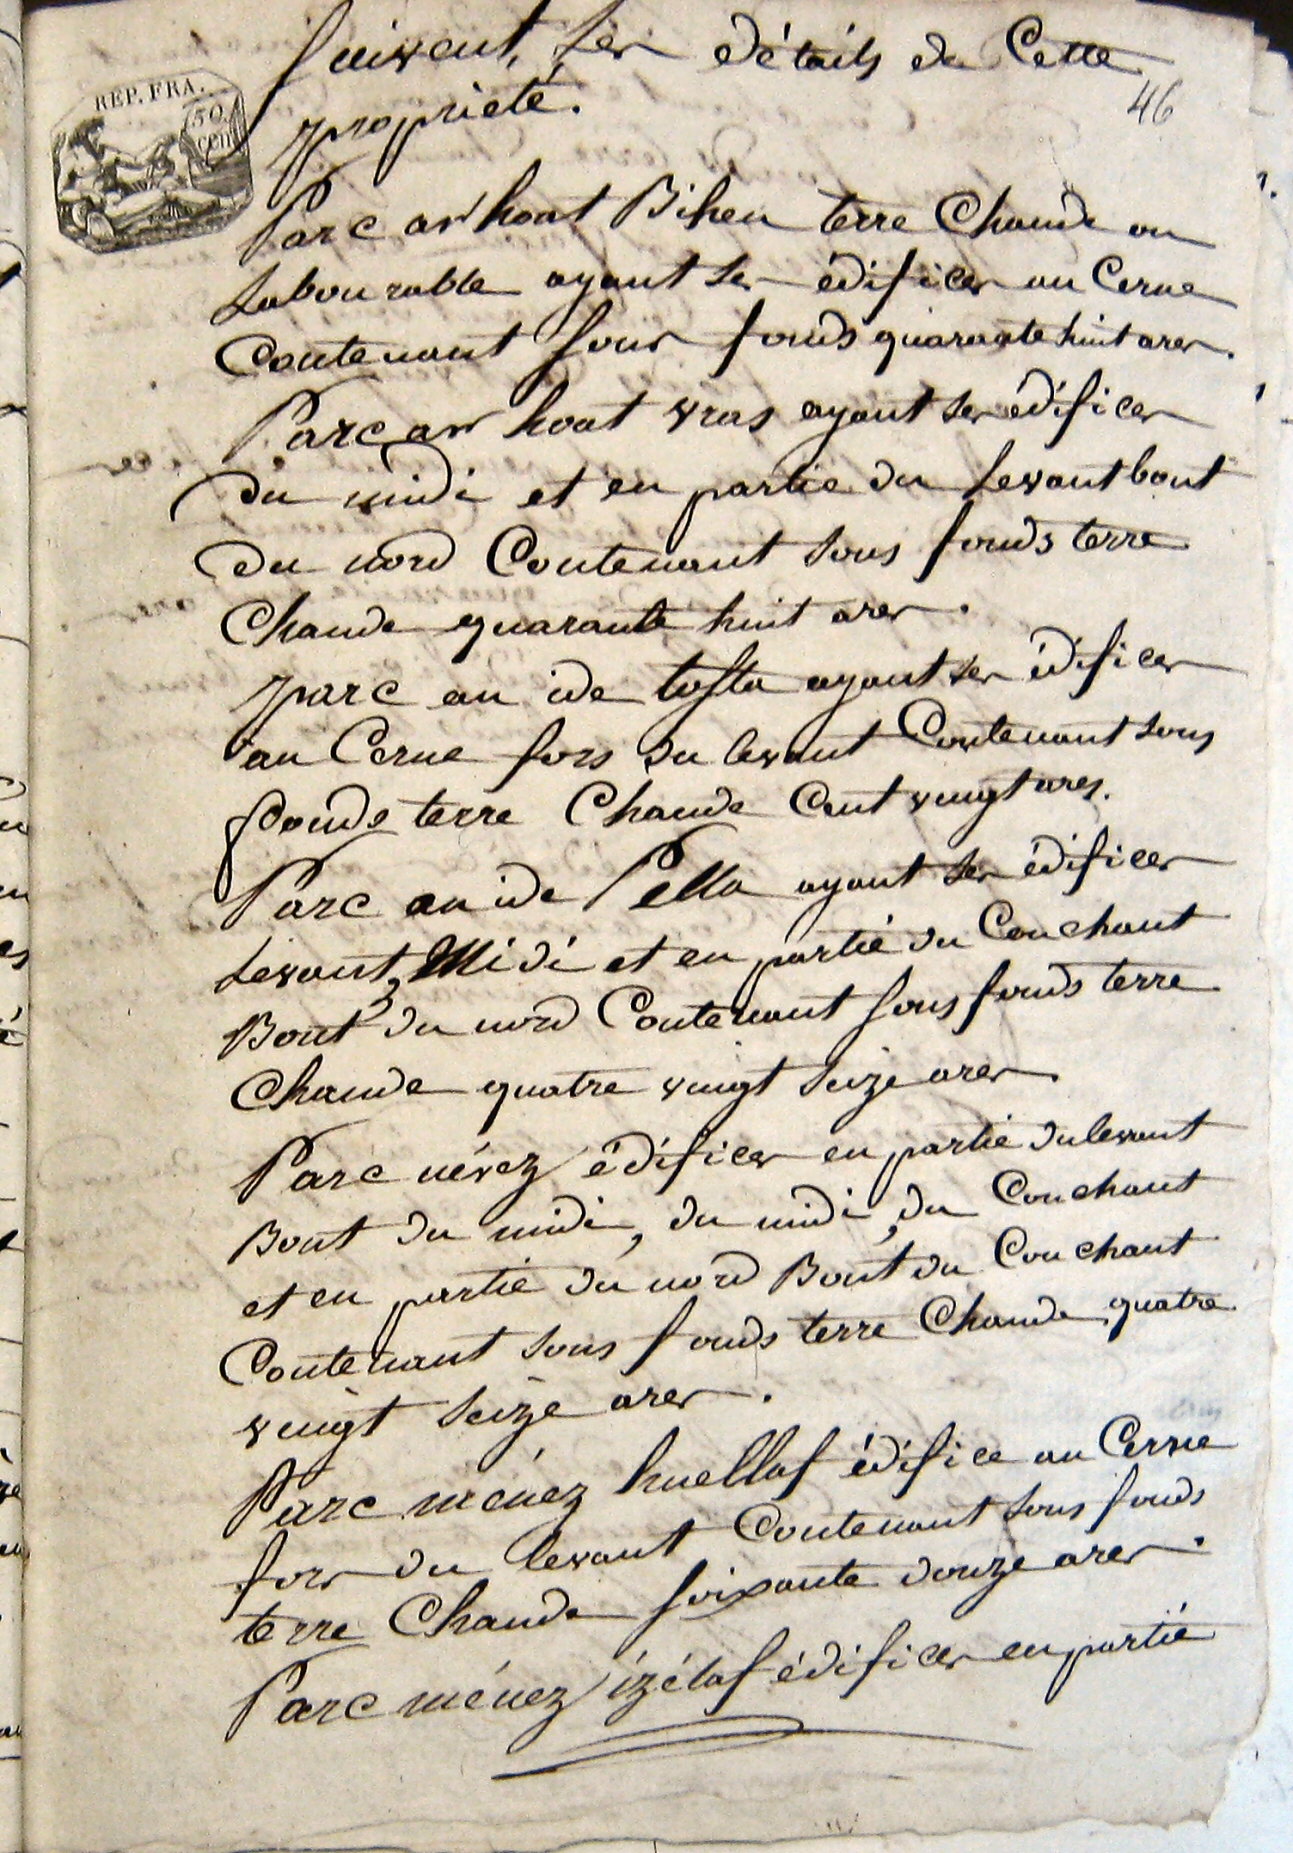 Suivent, les détails de Cette
46
REP. FRA.
50
cent
propriété.
Parc ar hoat Bihen terre Chaude ou
Labourable ayant ses édifices au Cerne
Contenant sous fonds quarante huit ares.
Parc ar hoat vras ayant ses édifices
du midi et en partie du Levant bout
du nord Contenant sous fonds terre
Chaude quarante huit ares.
parc an ide tosta ayant ses édifices
au Cerne fors du levant Contenant sous
fonds terre Chaude Cent vingt ares.
Parc an ide Pella ayant ses édifices
Levant, Midi et en partie du Couchant
Bout du nord Contenant sous fonds terre
Chaude quatre vingt seize ares.
Parc névez édifices en partie du levant
Bout du midi, du midi, du Couchant
et en partie du nord Bout du Couchant
Contenant sous fonds terre Chaude quatre
vingt seize ares.
Parc ménez huellaf édifice au Cerne
fors du levant Contenant sous fonds
terre Chaude soixante douze ares.
Parc ménez izélaf édifices en partie